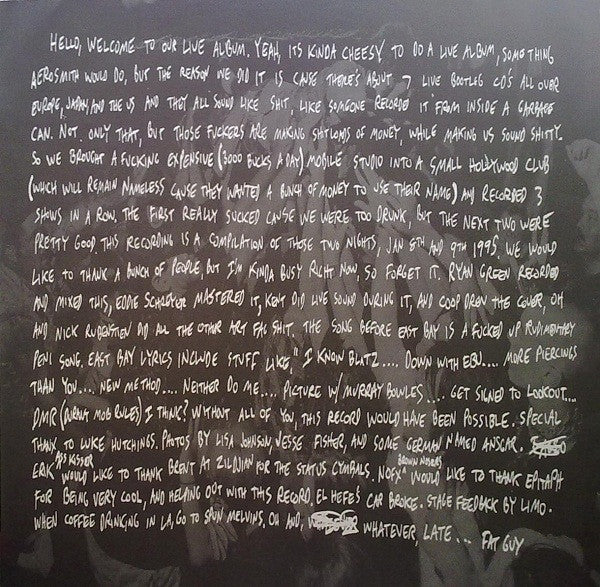 HELLO, WELCOME TO OUR LIVE ALBUM. YEAH, ITS KINDA CHEESY TO DO A LIVE ALBUM, SOMETHING
AEROSMITH WOULD DO, BUT THE REASON WE DID IT IS CAUSE THERE'S ABOUT 7 LIVE BOOTLEG CD'S ALL OVER
EUROPE, JAPAN AND THE US AND THEY ALL SOUND LIKE SHIT, LIKE SOMEONE RECORDED IT FROM INSIDE A GARBAGE
CAN. NOT ONLY THAT, BUT THOSE FUCKERS ARE MAKING SHITLOADS OF MONEY, WHILE MAKING US SOUND SHITTY.
SO WE BROUGHT A FUCKING EXPENSIVE (3000 BUCKS A DAY) MOBILE STUDIO INTO A SMALL HOLLYWOOD CLUB
(WHICH WILL REMAIN NAMELESS CAUSE THEY WANTED A BUNCH OF MONEY TO USE THEIR NAME) AND RECORDED 3
SHOWS IN A ROW, THE FIRST REALLY SUCKED CAUSE WE WERE TOO DRUNK, BUT THE NEXT TWO WERE
PRETTY GOOD. THIS RECORDING IS A COMPILATION OF THOSE TWO NIGHTS, JAN 8TH AND 9TH 1995. WE WOULD
LIKE TO THANK A BUNCH OF PEOPLE, BUT I'M KINDA BUSY RIGHT NOW, SO FORGET IT. RYAN GREEN RECORDED
AND MIXED THIS, EDDIE SCHREYER MASTERED IT, KENT DID LIVE SOUND DURING IT, AND COOP DREW THE COVER, OH
AND NICK RUBENSTIEN DID ALL THE OTHER ART FAG SHIT. THE SONG BEFORE EAST BAY IS A FUCKED UP RUDIMENTARY
PENI SONG. EAST BAY LYRICS INCLUDE STUFF LIKE," I KNOW BLATZ.... DOWN WITH EBU.... MORE PIERCINGS
THAN YOU.... NEW METHOD.... NEITHER DO ME.... PICTURE W/ MURRAY BOWLES.... GET SIGNED TO LOOKOUT....
DMR (DURANT MOB RULES) I THINK? WITHOUT ALL OF YOU, THIS RECORD WOULD HAVE BEEN POSSIBLE. SPECIAL
THANX TO LUKE HUTCHINGS. PHOTOS BY LISA JOHNSON, JESSE FISHER, AND SOME GERMAN NAMED ANSGAR.
ERIK ASS KISSER WOULD LIKE TO THANK BRENT AT ZILDJIAN FOR THE STATUS CYMBALS. NOFX BROWN NOSERS WOULD LIKE TO THANK EPITAPH
FOR BEING VERY COOL, AND HELPING OUT WITH THIS RECORD, EL HEFE'S CAR BROKE. STAGE FEEDBACK BY LIMO.
WHEN COFFEE DRINKING IN LA, GO TO SPUN MELVINS. OH AND, WHATEVER, LATE... FAT GUY